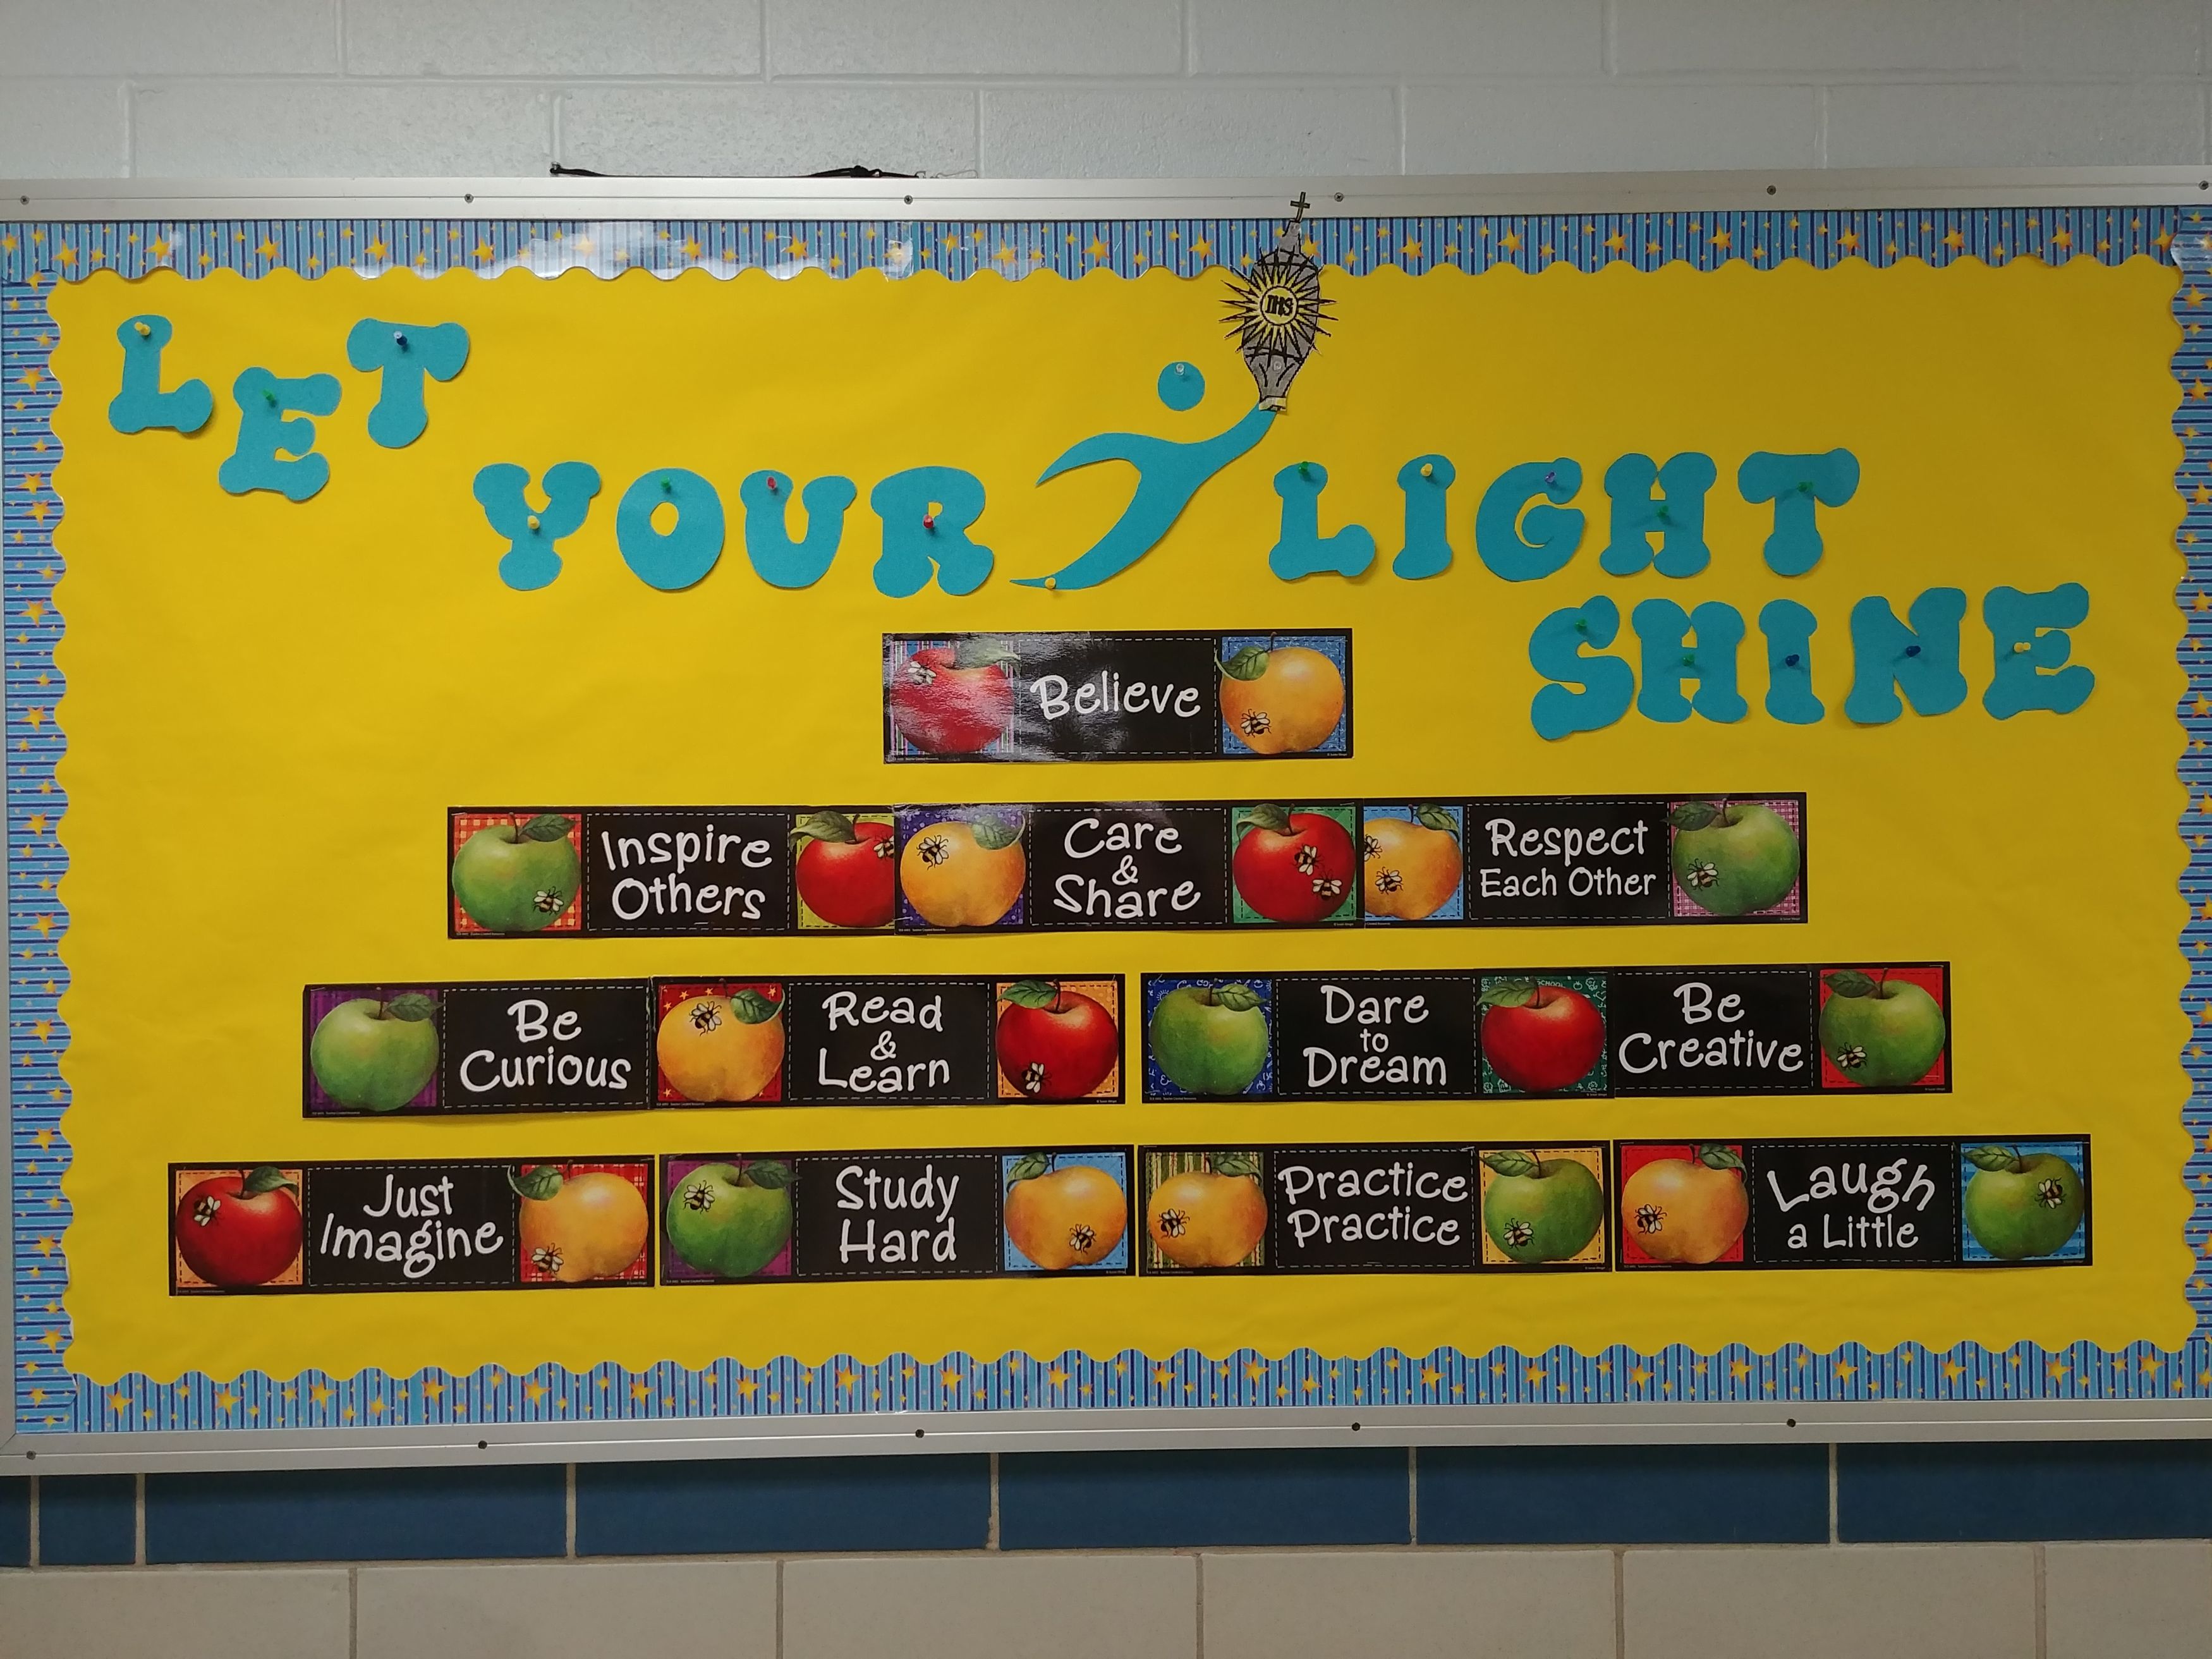 LET
YOUR LIGHT
SHINE
IHS
Believe
Inspire
Others
Care
&
Share
Respect
Each Other
Be
Curious
Read
&
Learn
Dare
to
Dream
Be
Creative
Just
Imagine
Study
Hard
Practice
Practice
Laugh
a Little